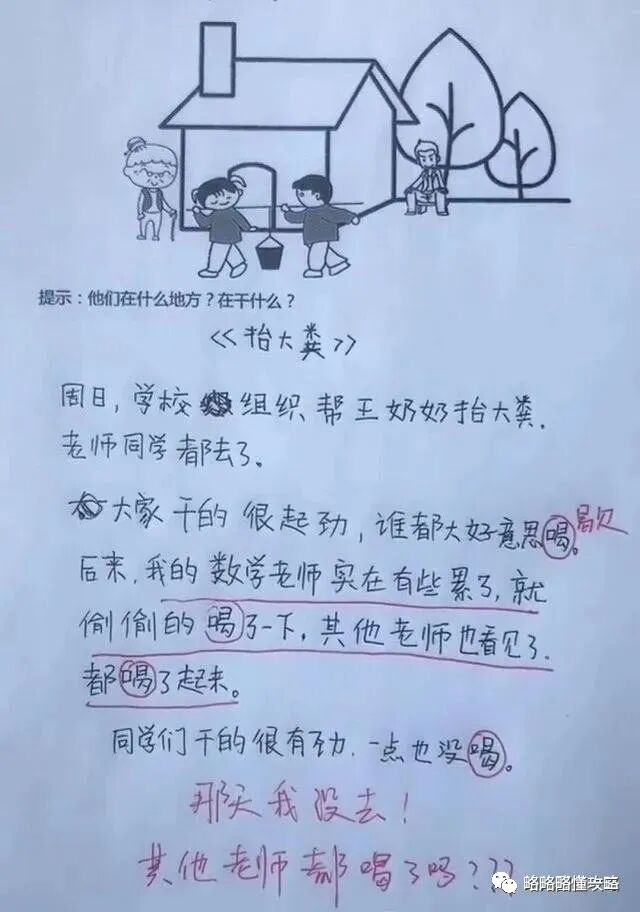 提示：他们在什么地方？在干什么？
<<抬大粪>>
周日，学校组织帮王奶奶抬大粪.
老师同学都去了。
大家干的很起劲，谁都大好意思喝。歇
后来，我的数学老师实在有些累了，就
偷偷的喝了一下，其他老师也看见了.
都喝了起来。
同学们干的很有劲.一点也没喝。
那天我没去！
其他老师都喝了吗？？？
略略略懂攻略